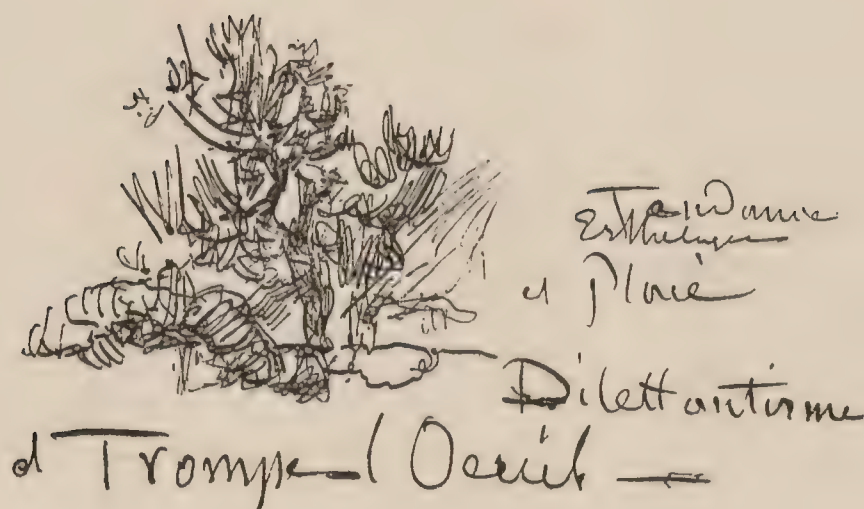 Tendance
Esthetique
et Placé
Dilettantisme
et Trompe l'Oeuil